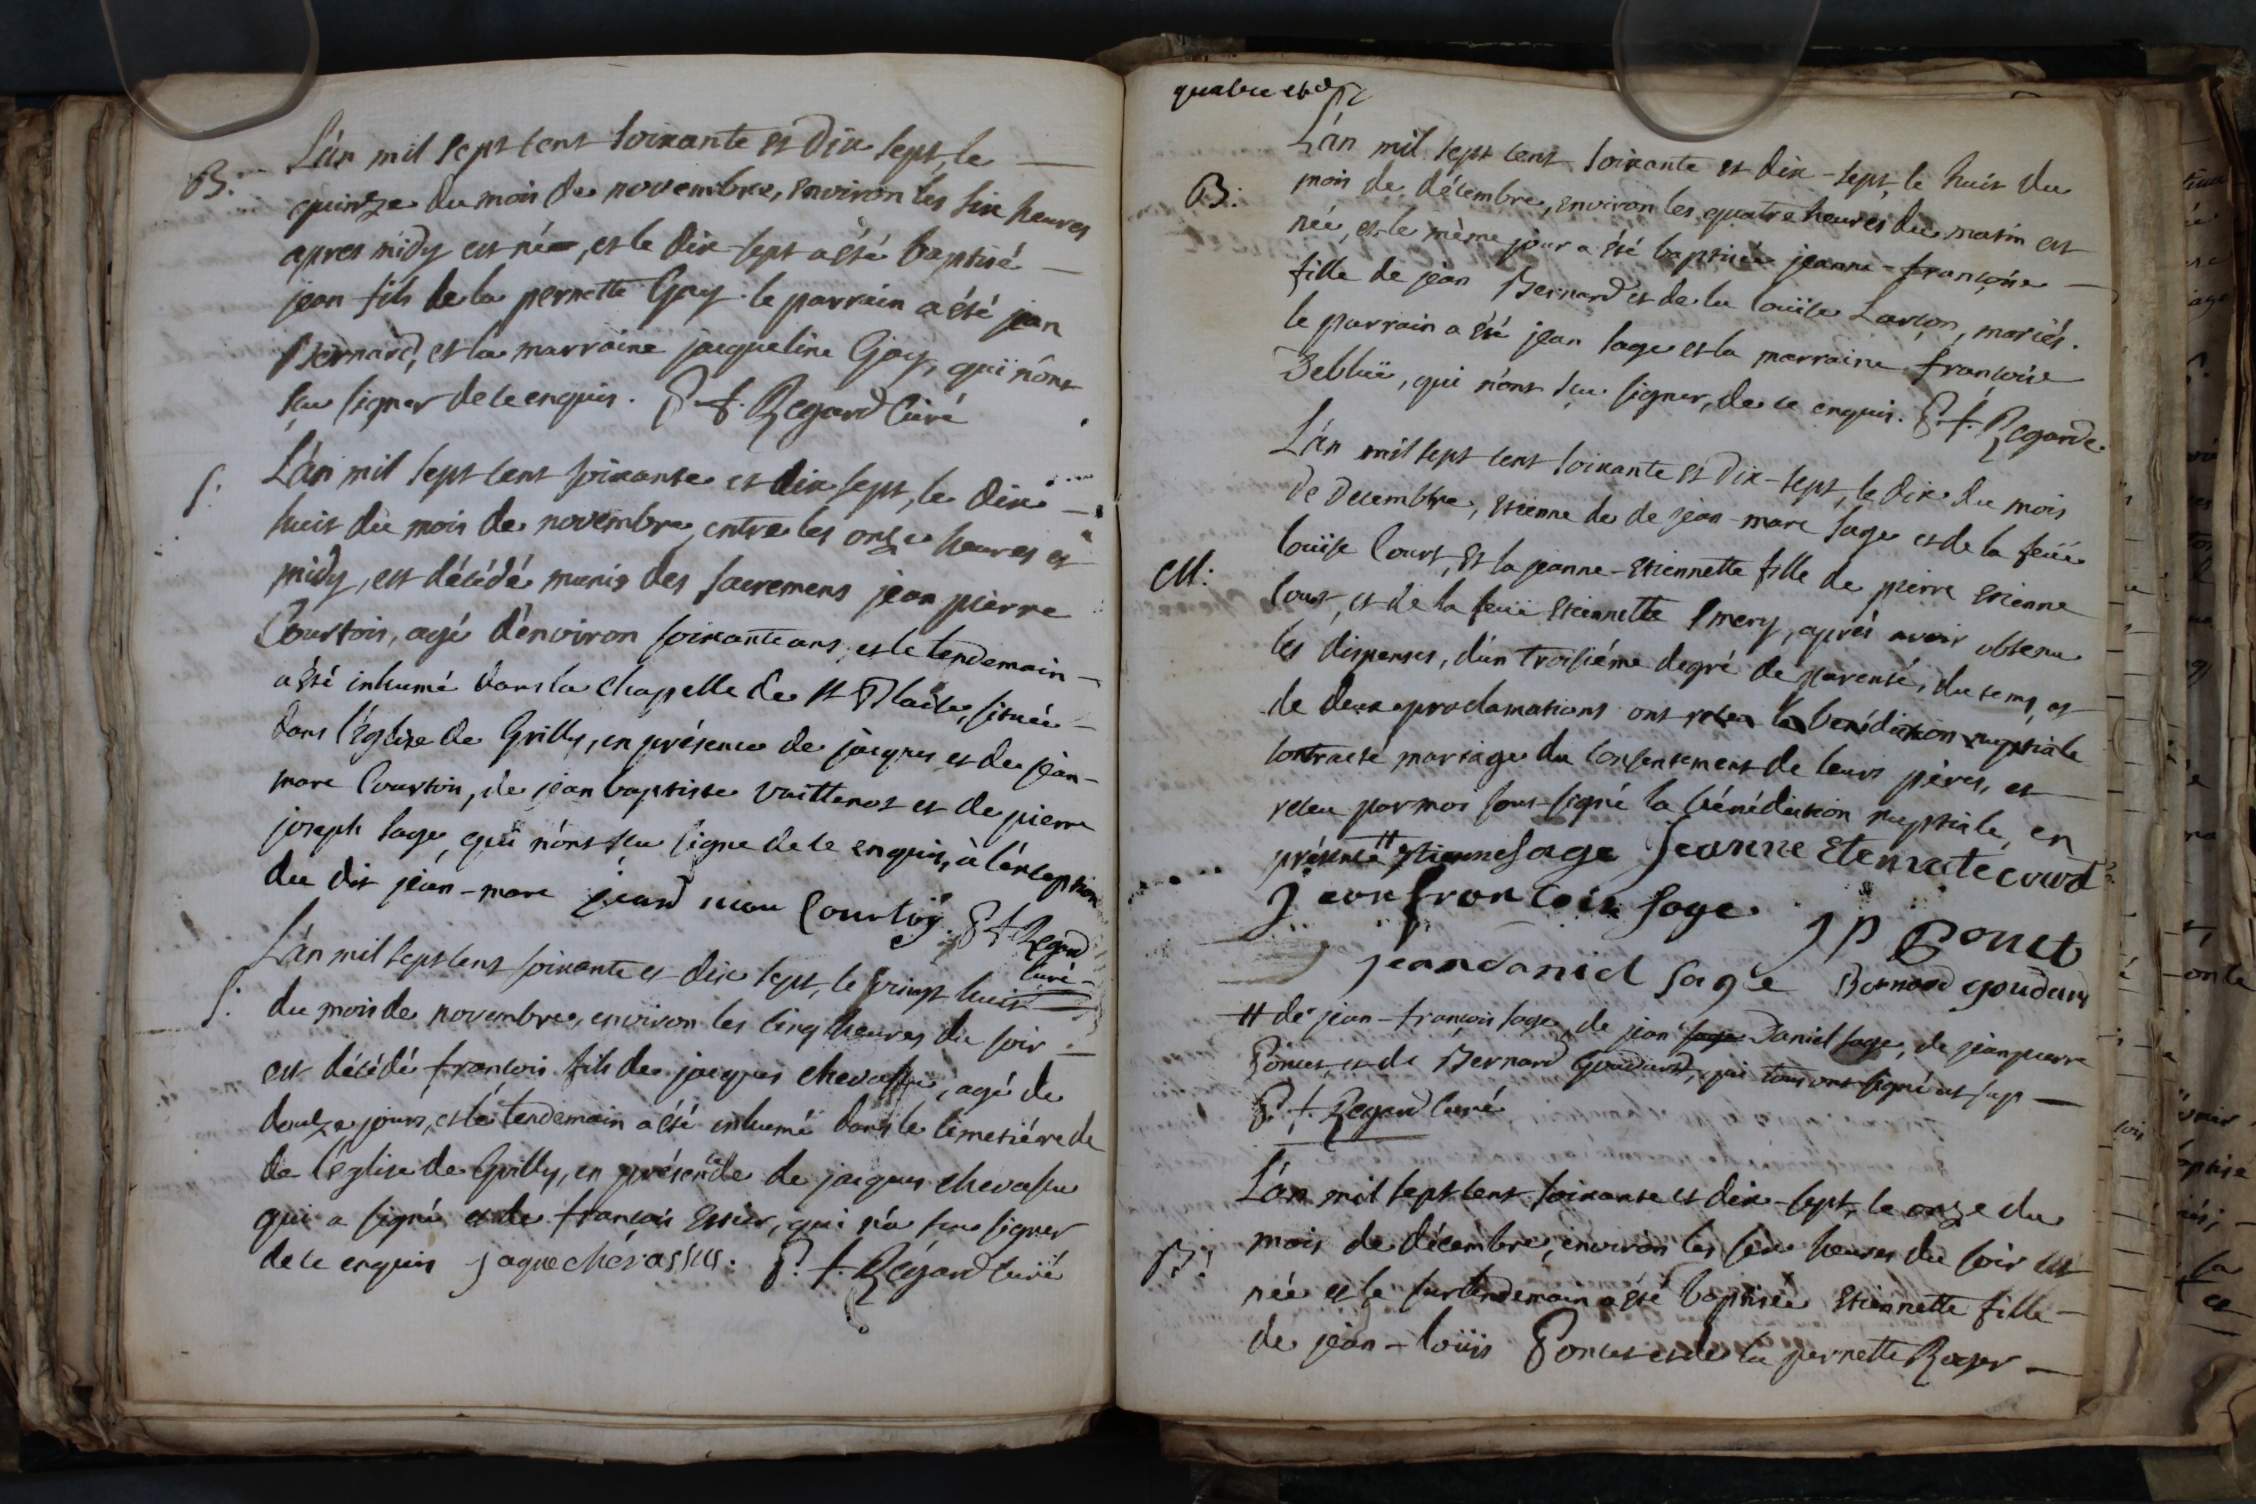 B. L'an mil sept cent soixante et dix sept, le
quinze du mois de novembre, environ les six heures
apres midy est né, et le dix-sept a été baptisé
jean fils de la pernette Gay. le parrain a été jean
Bernard, et la marraine jacqueline Gay, qui n'ont
sçu signer de ce enquis. P. f. Regard Curé
S. L'an mil sept cent soixante et dix sept, le dix
huit du mois de novembre, entre les onze heures et
midy, est décédé munis des sacremens jean pierre
Courtois, agé d'environ soixante ans, et le lendemain
a été inhumé dans la chappelle de St Blaise, située
dans l'église de Grilly, en présence de jacques et de jean-
marc Courtois, de jean baptiste Vuittenot et de pierre
joseph sage, qui n'ont sçu signe de ce enquis, à l'exception
du dit jean-marc Courtois P f Regard
Curé
S. L'an mil sept cent soixante et dix sept, le vingt huit
du mois de novembre, environ les cinq heures du soir
est décédé françois fils de jacques chevassu, agé de
douze jours, et le lendemain a été inhumé dans le cimetiére de
de l'église de Grilly, en présence de jacques chevassu
qui a signé et de françois Essier, qui n'a sçu signer
de ce enquis jaque chevassus. P. f. Regard Curé
quatre et dix
L'an mil sept cent soixante et dix-sept, le huit du
B. mois de décembre, environ les quatre heures du matin est
née, et le même jour a été baptisée jeanne-françoise
fille de jean Bernard et de la louïse Larçon, mariés.
le parrain a été jean sage et la marraine françoise
Deblüe, qui n'ont sçu signer, de ce enquis. P. f. Regard c.
L'an mil sept cent soixante et dix-sept, le dix du mois
de decembre, Etienne de de jean-marc sage et de la feüe
louïse Court, Et la jeanne-Etiennette fille de pierre Etienne
M. Court, et de la feüe Etiennette Emery, après avoir obtenu
les dispenses, d'un troisiéme degré de parenté, du tems, et
de deux proclamations ont reçu la benédiction nuptiale
contracté mariage du consentement de leurs pères, et
reçu par moi sous-signé la bénédiction nuptiale, en
présence # Etienne sage jeanne Etennate court
jean francois sage JP Ponct
jean daniel sage Bernard goudard
# de jean-françois sage, de jean sage Daniel sage, de jean pierre
Poncet, et de Bernard Goudard, qui tous ont signé
P. f. Regard Curé
L'an mil sept cent soixante et dix-sept, le onze du
B. mois de décembre, environ les six heures du soir est
née et le surlendemain a été baptisée Etiennette fille
de jean-loüis Poncet et de la pernette Roger